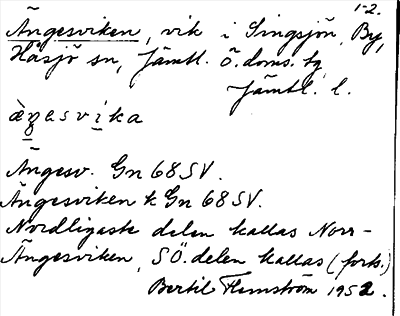 1-2.
Ängesviken, vik i Singsjön, By,
Håsjö sn, Jämtl. Ö. doms. tg
Jämtl. l.
Ängesv. Gn 68 SV.
Ängesviken k Gn 68 SV.
Nordligaste delen kallas Norr-
Ängesviken, SÖ. delen kallas (forts.)
Bertil Flemström 1952.